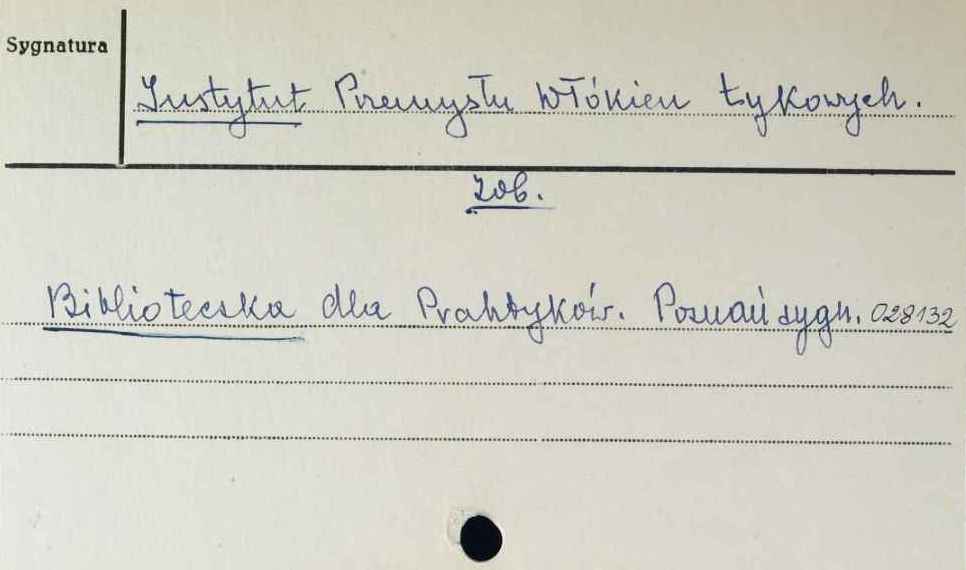 Sygnatura
Instytut Przemysłu Włókien Łykowych.
zob.
Biblioteczka dla Praktyków. Poznań sygn. 028132